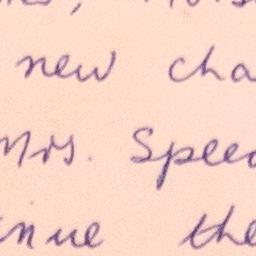 new cha
Mrs. Speed
inue the